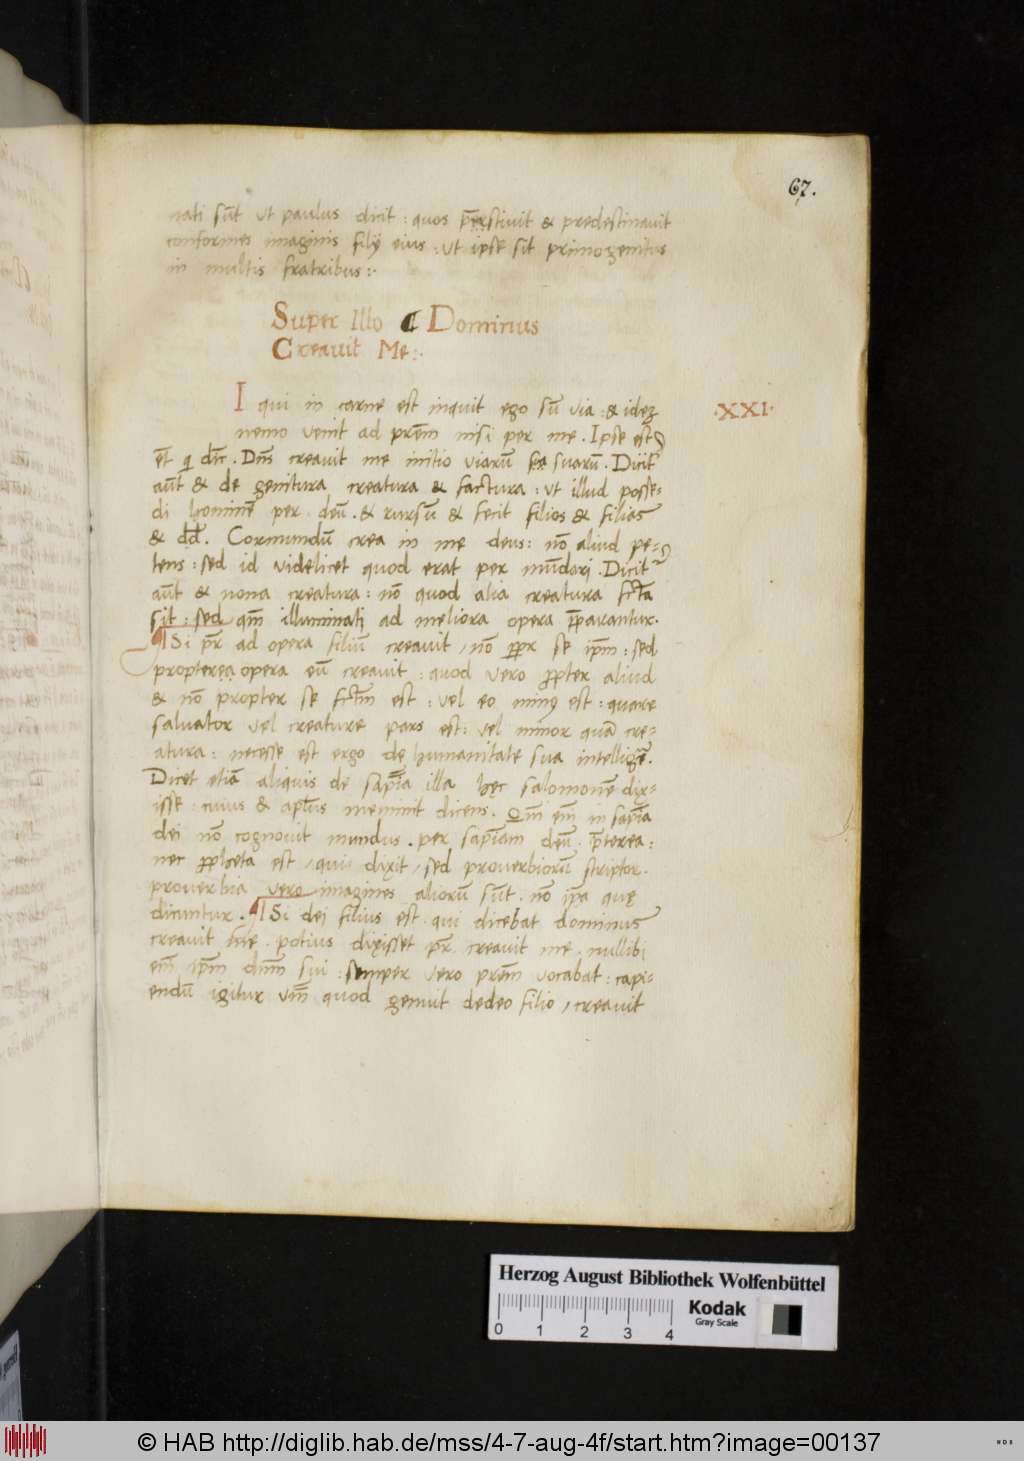 67.
nati sūt ut paulus dicit : quos & predestinavit
conformes imaginis filÿ eius : ut ipse sit primogenitus
in multis fratribus :·
Super Illo Dominus
Creavit Me :·
I qui in carne est inquit ego sū via : & idez
·XXI·
nemo venit ad prēm nisi per me . Ipse est
ēt q dīc . Dn̄s creavit me initio viarū suarū . Dicit
aūt & de genitura creatura & factura : ut illud posse-
di hominē per deū . & rursū & fecit filios & filias
& dd̄ . Cormundū crea in me deus : nō aliud pe-
tens : sed id videlicet quod erat per mūdari . Dicit
aūt & nona creatura : nō quod alia creatura fcta
sit : sed qm̄ illuminati ad meliora opera p̄pararantur .
Si pr̄ ad opera filiū creavit / nō ppr se ip̄m : sed
propterea opera eū creavit : quod vero ppter aliud
& nō propter se fctm̄ est : vel eo minꝯ est : quare
salvator vel creature pars est : vel minor quā cre-
atura : necesse est ergo de humanitate sua intelligē .
Dicet etiā aliquis de sap̄ia illa hęc salomonē dix-
isse : cuius & apl̄us meminit dicens . Qm̄ em̄ in sap̄ia
dei nō cognovit mundus . per sap̄iam deū . p̄terea :
nec ppheta est / qui dixit / sed proverbiorū scriptor .
proverbia vero imagines aliorū sūt . nō ip̄a quę
dicuntur . Si dei filius est qui dicebat dominus
creavit me . potius dixisset pr̄ creavit me . nullibi
em̄ ip̄m dnm̄ sui : semper vero prēm vocabat : capi-
endū igitur vm̄ quod genuit dedeo filio / creavit
Herzog August Bibliothek Wolfenbüttel
0 1 2 3 4
Kodak
Gray Scale
© HAB http://diglib.hab.de/mss/4-7-aug-4f/start.htm?image=00137